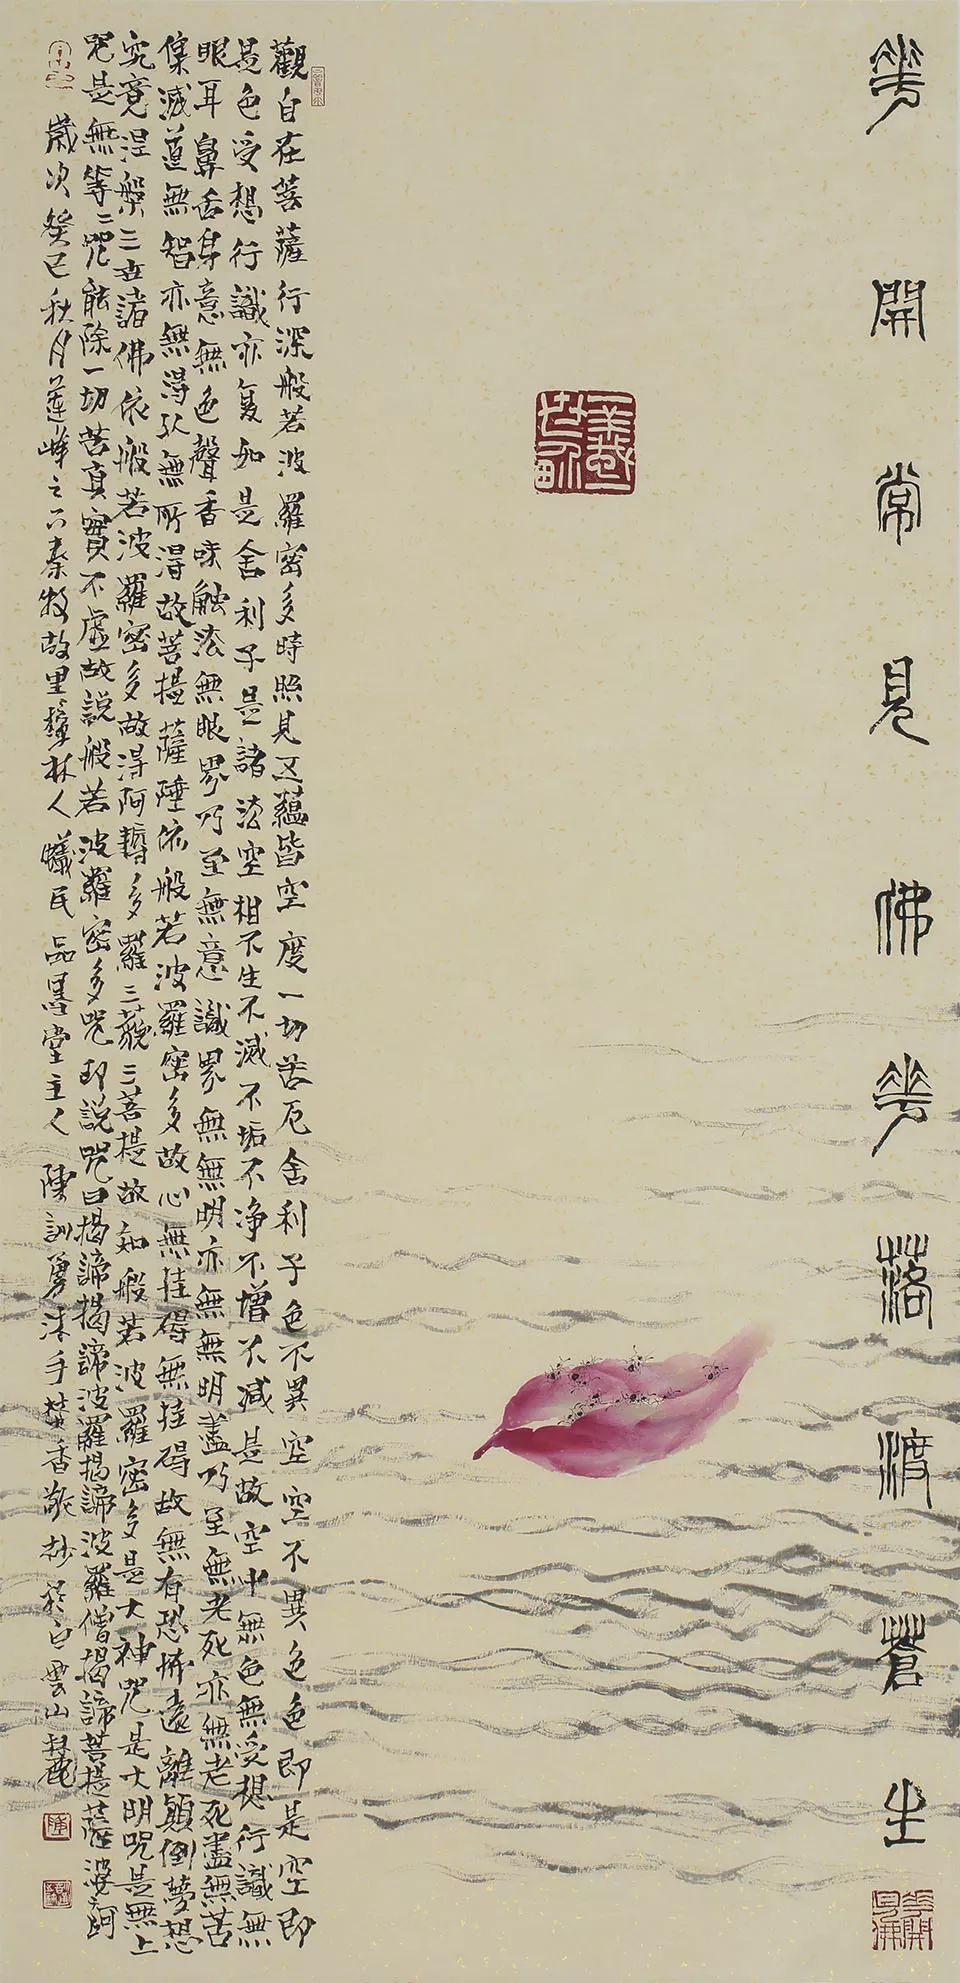 花開常見佛花落渡蒼生
花開見佛
觀自在菩薩行深般若波羅密多時照見五蘊皆空度一切苦厄舍利子色不異空空不異色色即是空空即
是色受想行識亦復如是舍利子是諸法空相不生不滅不垢不净不增不減是故空中無色無受想行識無
眼耳鼻舌身意無色聲香味觸法無眼界乃至無意識界無無明亦無無明盡乃至無老死亦無老死盡無苦
集滅道無智亦無得以無所得故菩提薩埵依般若波羅密多故心無挂碍無挂碍故無有恐怖遠離顛倒夢想
究竟涅槃三世諸佛依般若波羅密多故得阿耨多羅三藐三菩提故知般若波羅密多是大神咒是大明咒是無上
咒是無等等咒能除一切苦真實不虛故說般若波羅密多咒即說咒曰揭諦揭諦波羅揭諦波羅僧揭諦菩提薩婆訶
歲次癸巳秋月蓮峰之下秦牧故里樟林人蟻民品墨堂主人陳訓勇沐手焚香敬抄於白雲山麓